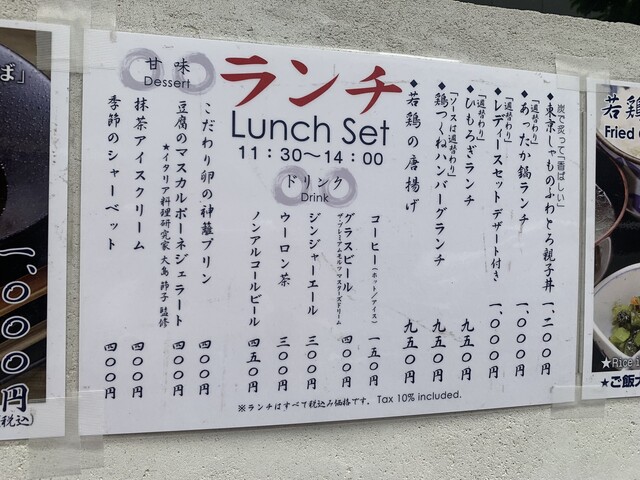 ランチ
Lunch Set
11：30〜14：00
炭で炙って「香ばしい」
◆東京しゃものふわとろ親子丼 一、二〇〇円
「週替わり」
◆あったか鍋ランチ 一、〇〇〇円
「週替わり」
◆レディースセット デザート付き 一、〇〇〇円
「週替わり」
◆ひもろぎランチ 九五〇円
「ソースは週替わり」
◆鶏つくねハンバーグランチ 九五〇円
◆若鶏の唐揚げ 九五〇円
ドリンク
Drink
コーヒー（ホット／アイス） 一五〇円
グラスビール 四〇〇円
ザ・プレミアムモルツ マスターズドリーム
ジンジャーエール 三〇〇円
ウーロン茶 三〇〇円
ノンアルコールビール 四五〇円
甘味
Dessert
こだわり卵の神蘊プリン 四〇〇円
豆腐のマスカルポーネジェラート 四〇〇円
★イタリア料理研究家 大島 節子 監修
抹茶アイスクリーム 四〇〇円
季節のシャーベット 四〇〇円
※ランチはすべて税込み価格です。 Tax 10% included.
ば」
一、〇〇〇円
（税込）
若鶏
Fried
★Rice
★ご飯